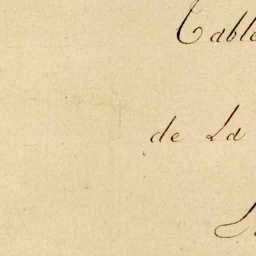 Table
de La